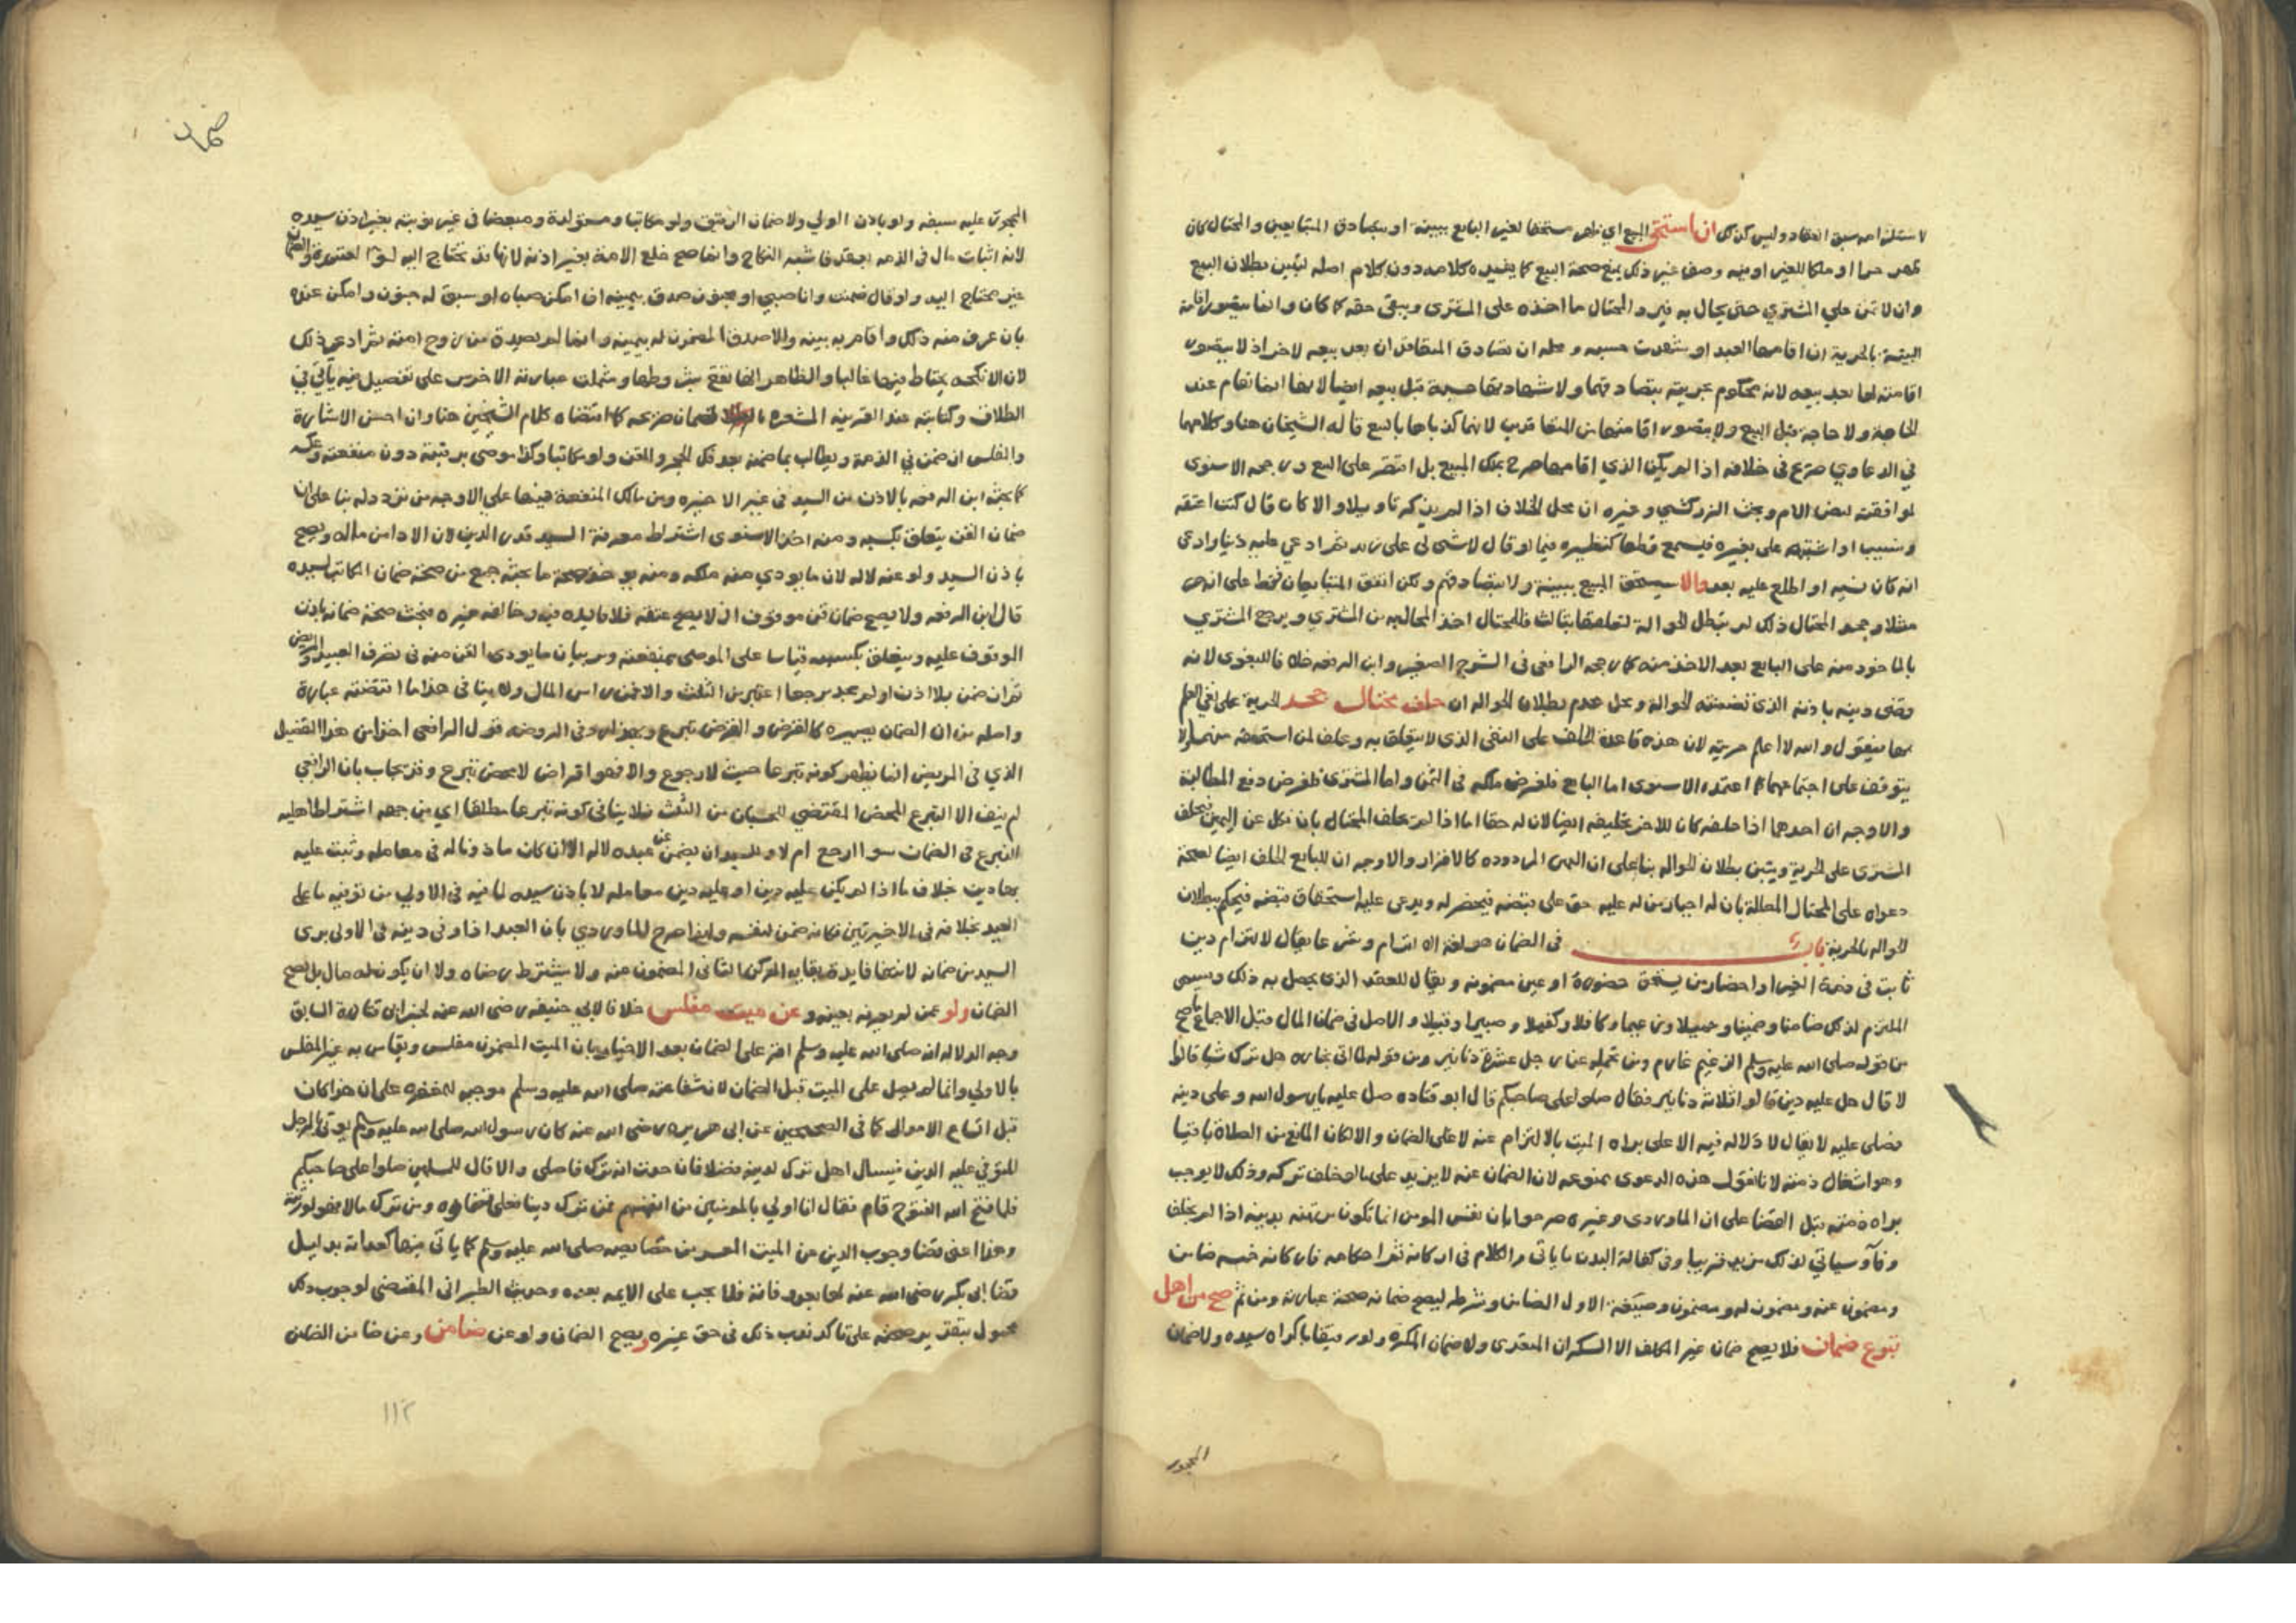 لاستلزامه سبق العقاد وليس كذلك ان استحق المبيع اي ظهر مستحقا لغير البايع ببينة او بتصادق المتبايعين والمحتال كان
ظهر حرا او ملكا للغير او به وصف غير ذلك يمنع صحة البيع كما يفيده كلامه دون كلام اصله لتبين بطلان البيع
وان لا ثمن علي المشتري حتى يحال به فيرد المحتال ما اخذه على المشتري ويبقى حقه كما كان وانما يتصور اقامة
البينة بالحرية ان اقامها العبد او شهدت حسبه ومحله ان تصادق المتعاقدان بعد بيعه لاخر اذ لا يتصور
اقامته لها بعد بيعه لانه محكوم بحريته بتصادقهما ولا شهادتها حسبة قبل بيعه ايضا لانها انما تقام عند
الحاجة ولا حاجة قبل البيع ولا يتصور اقامتها من المتعاقدين لانهما كذباها بالبيع قاله الشيخان هنا وكلامهما
في الدعاوي صرح في خلافه اذا لم يكن الذي اقامها صرح بملك المبيع بل اقتصر على البيع ورجحه الاسنوى
لموافقته لبعض الام وبحث الزركشي وغيره ان محل الخلاف اذا لم يذكر تاويلا والا كان قال كنت اعتقه
ونسيت او اشتبه على بغيره فيسمع قطعا كنظيره فيما لو قال لا شى لى على زيد ثم ادعي عليه دينا وادعى
انه كان نسيه او اطلع عليه بعد والا يستحق المبيع ببينة ولا بتصادقهم ولكن اتفق المتبايعان فقط على انه حر
مثلا وجحد المحتال ذلك لم تبطل الحوالة لتعلقها بثالث فللمحتال اخذ المحال به من المشتري ويرجع المشتري
بالماخوذ منه على البايع بعد الاخذ منه كما رجحه الرافعى فى الشرح الصغير وابن الرفعه خلافا للبغوى لانه
وقضى دينه باذنه الذى تضمنته الحوالة ومحل عدم بطلان الحواله ان حلف محتال جحد الحرية على نفي العلم
بها فيقول والله لا اعلم حريته لان هذه قاعدة الحلف على النفى الذى لا يتعلق به وحلف لمن استحلفه منهما ولا
يتوقف على اجتماعهما كما اعتمده الاسنوى اما البايع فلغرض ملكه في الثمن واما المشترى فلغرض دفع المطالبة
والاوجه ان احدهما اذا حلفه كان للاخر تحليفه ايضا لان له حقا اما اذا لم يحلف المحتال بان نكل عن اليمين فيحلف
المشترى على الحرية ويتبين بطلان الحواله بنا على ان اليمين المردوده كالاقرار والاوجه ان للبايع الحلف ايضا لصحة
دعواه على المحتال المطالة بان له اجبار من له عليه حق على قبضه فيحضر له ويدعى عليه استحقاق قبضه فيحكم ببطلان
الحواله بالحرية باب في الضمان هو لغة الالتزام وشرعا يقال لالتزام دين
ثابت فى ذمة الغير او احضار من يستحق حضوره او عين مضمونه ويقال للعقد الذى يحصل به ذلك ويسمى
الملتزم لذلك ضامنا وضمينا وحميلا وزعيما وكافلا وكفيلا وصبيرا وقبيلا والاصل فى ضمان المال قبل الاجماع ما صح
من قوله صلى الله عليه وسلم الزعيم غارم ومن تحمله عن رجل عشرة دنانير ومن قوله لما اتى بجنازه هل ترك شيا قالوا
لا قال هل عليه دين قالوا ثلاثة دنانير فقال صلوا على صاحبكم قال ابو قتاده صل عليه يا رسول الله وعلى دينه
فصلى عليه لا يقال لا دلاله فيه الا على براه الميت بالالتزام عنه لا على الضمان والا لكان المانع من الصلاة باقيا
وهو اشتغال ذمته لانا نقول هذه الدعوى ممنوعه لان الضمان عنه لا يزيد على ما لو خلف تركه وذلك لا يوجب
براه ذمته قبل القضا على ان الماوردى وغيره صرحوا بان نفس المومن انما تكون مرتهنه بدينه اذا لم يخلف
وفا وسياتي لذلك مزيد قريبا وفى كفالة البدن ما ياتى والكلام فى اركانه ثم احكامه فاركانه خمسه ضامن
ومضمون عنه ومضمون له ومضمون وصيغة الاول الضامن وشرطه ليصح ضمانه صحة عبارته ومن ثم صح من اهل
تبرع ضمان فلا يصح ضمان غير المكلف الا السكران المتعدى ولا ضمان المكره ولو رقيقا باكراه سيده ولا ضمان
المحجور
المحجور عليه بسفه ولو باذن الولي ولا ضمان الرقيق ولو مكاتبا ومستولدة ومبعضا فى غير نوبته بغير اذن سيده
لانه اثبات مال فى الذمه بعقد فاشبه النكاح وانما صح خلع الامة بغير اذنه لانها قد تحتاج اليه لسوء العشرة والضمان
غير محتاج اليه ولو قال ضمنت وانا صبي او مجنون صدق بيمينه ان امكن صباه او سبق له جنون وامكن عنده
بان عرف منه ذلك او اقام به بينه والا صدق المضمون له بيمينه وانما لم يصدق من زوج امته ثم ادعى ذلك
لان الانكحه يحتاط فيها غالبا والظاهر انها تقع بشروطها وشملت عبارته الاخرس على تفصيل فيه ياتي في
الطلاق وكنايته عند القرينه المشعره بالضمان صريحه كما اقتضاه كلام الشيخين هنا وان احسن الاشارة
والمفلس ان ضمن في الذمة ويطالب بما ضمنه بعد فك الحجر والقن ولو مكاتبا وكذا موصى برقبته دون منفعته وعكسه
كما بحثه ابن الرفعه بالاذن من السيد فى غير الاخيره ومن مالك المنفعة فيها على الاوجه من تردد له بنا على ان
ضمان القن يتعلق بكسبه ومنه اخذ الاسنوى اشتراط معرفة السيد قدر الدين لان الادا من ماله ويصح
باذن السيد ولو عنه لا له لان ما يودي منه ملكه ومنه يوخذ صحة ما بحثه جمع من صحة ضمان المكاتب لسيده
قال ابن الرفعه ولا يصح ضمان قن موقوف اذ لا يصح عتقه فلا فايده فيه وخالفه غيره فبحث صحة ضمانه باذن
الموقوف عليه ويتعلق بكسبه قياسا على الموصى بمنفعته وسر بيان ما يودى القن منه فى تصرف العبيد والمريض
ثم ان ضمن بلا اذن او لم يجد مرجعا اعتبر من الثلث والا فمن راس المال ولا ينافى هذا ما اقتضته عبارة
واصله من ان الضمان بيسيره كالقرض والقرض تبرع ومجزله وفى الروضه قول الرافعى اخذ من هذا التفصيل
الذي فى المريض انما يظهر كونه تبرعا حيث لا رجوع والا فهو اقراض لا محض تبرع وقد يجاب بان الرافعي
لم ينف الا التبرع المحض المقتضي للحسبان من الثلث فلا ينافى كونه تبرعا مطلقا اي من جهه اشتراط اهليه
التبرع فى الضمان سوا ارجع ام لا وللسيد ان يضمن عن عبده لا له الا ان كان ماذونا له فى معامله وثبت عليه
بها دين بخلاف ما اذا لم يكن عليه دين او عليه دين معامله لا باذن سيده لما فيه فى الاولى من توفيه ما على
العبد بخلافه فى الاخيرتين فكانه ضمن لنفسه ولهذا صرح الماوردي بان العبد اذا وفى دينه فى الاولى برى
السيد من ضمانه لانتفا فايدة بقايه الركن الثانى المضمون عنه ولا يشترط رضاه ولا ان يكون له مال بل يصح
الضمان ولو عمن لم يعرفه بعينه وعن ميت مفلس خلافا لابي حنيفه رضى الله عنه لخبر ابى قتادة السابق
وجه الدلاله انه صلى الله عليه وسلم اقر على الضمان بعد الاخبار بان الميت المضمون مفلس ويقاس به غير المفلس
بالاولي وانما لم يصل على الميت قبل الضمان لان شفاعته صلى الله عليه وسلم موجبه للمغفره على ان هذا كان
قبل اتساع الاموال كما فى الصحيحين عن ابى هريره رضى الله عنه كان رسول الله صلى الله عليه وسلم يوتى بالرجل
المتوفى عليه الدين فيسال هل ترك لدينه فضلا فان حدث انه ترك فا صلى والا قال للمسلمين صلوا على صاحبكم
فلما فتح الله الفتوح قام فقال انا اولي بالمومنين من انفسهم فمن ترك دينا فعلى قضاوه ومن ترك مالا فهو لورثته
وهذا اعنى قضا وجوب الدين عن الميت المعسر من خصايصه صلى الله عليه وسلم كما ياتى منها كعداته بدليل
قضا ابى بكر رضى الله عنه لها بعد وفاته فلا يجب على الايمه بعده وحديث الطبرانى المقتضى لوجوب ذلك
محمول بتقدير صحته على تاكد ندب ذلك فى حق غيره ويصح الضمان ولو عن ضامن وعن ضامن الضامن
١١٢